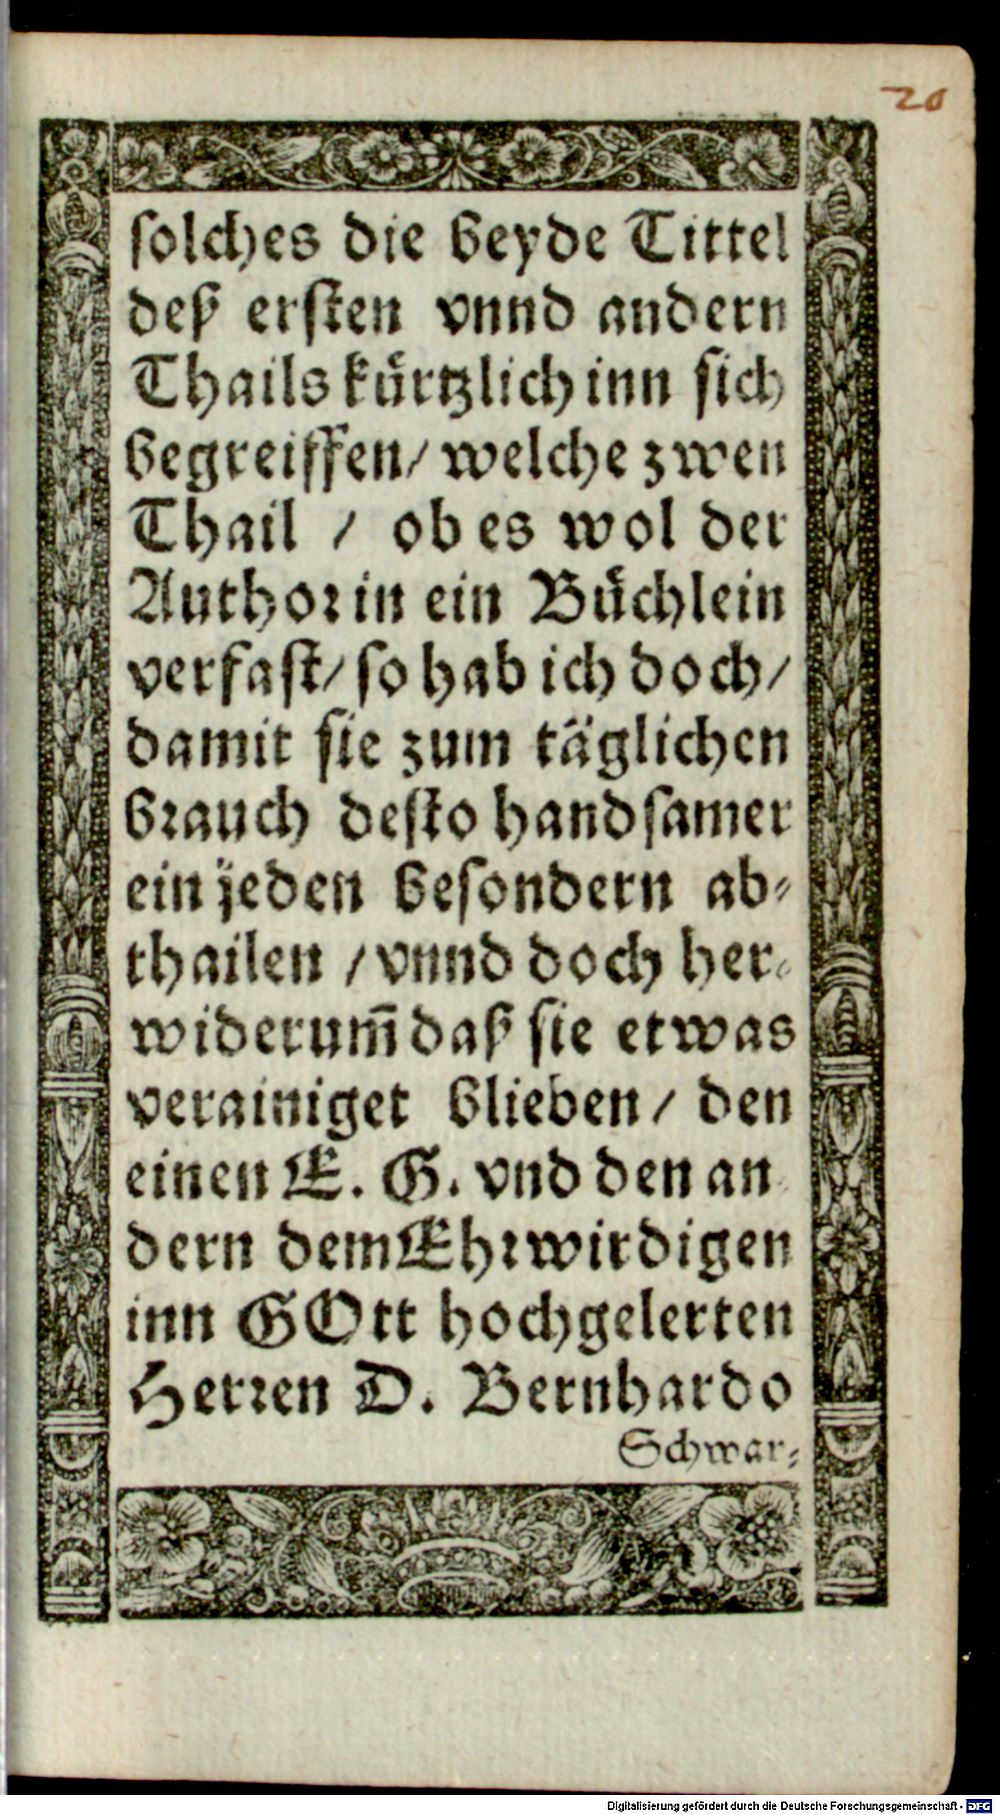 20
solches die beyde Tittel
deß ersten vnnd andern
Thails kürtzlich inn sich
begreiffen/ welche zwen
Thail / ob es wol der
Author in ein Büchlein
verfast/ so hab ich doch/
damit sie zum täglichen
brauch desto handsamer
ein jeden besondern ab-
thailen / vnnd doch her-
widerum̄ daß sie etwas
verainiget blieben / den
einen E. G. vnd den an
dern dem Ehrwirdigen
inn GOtt hochgelerten
Herren D. Bernhardo
Schwar-
Digitalisierung gefördert durch die Deutsche Forschungsgemeinschaft - DFG